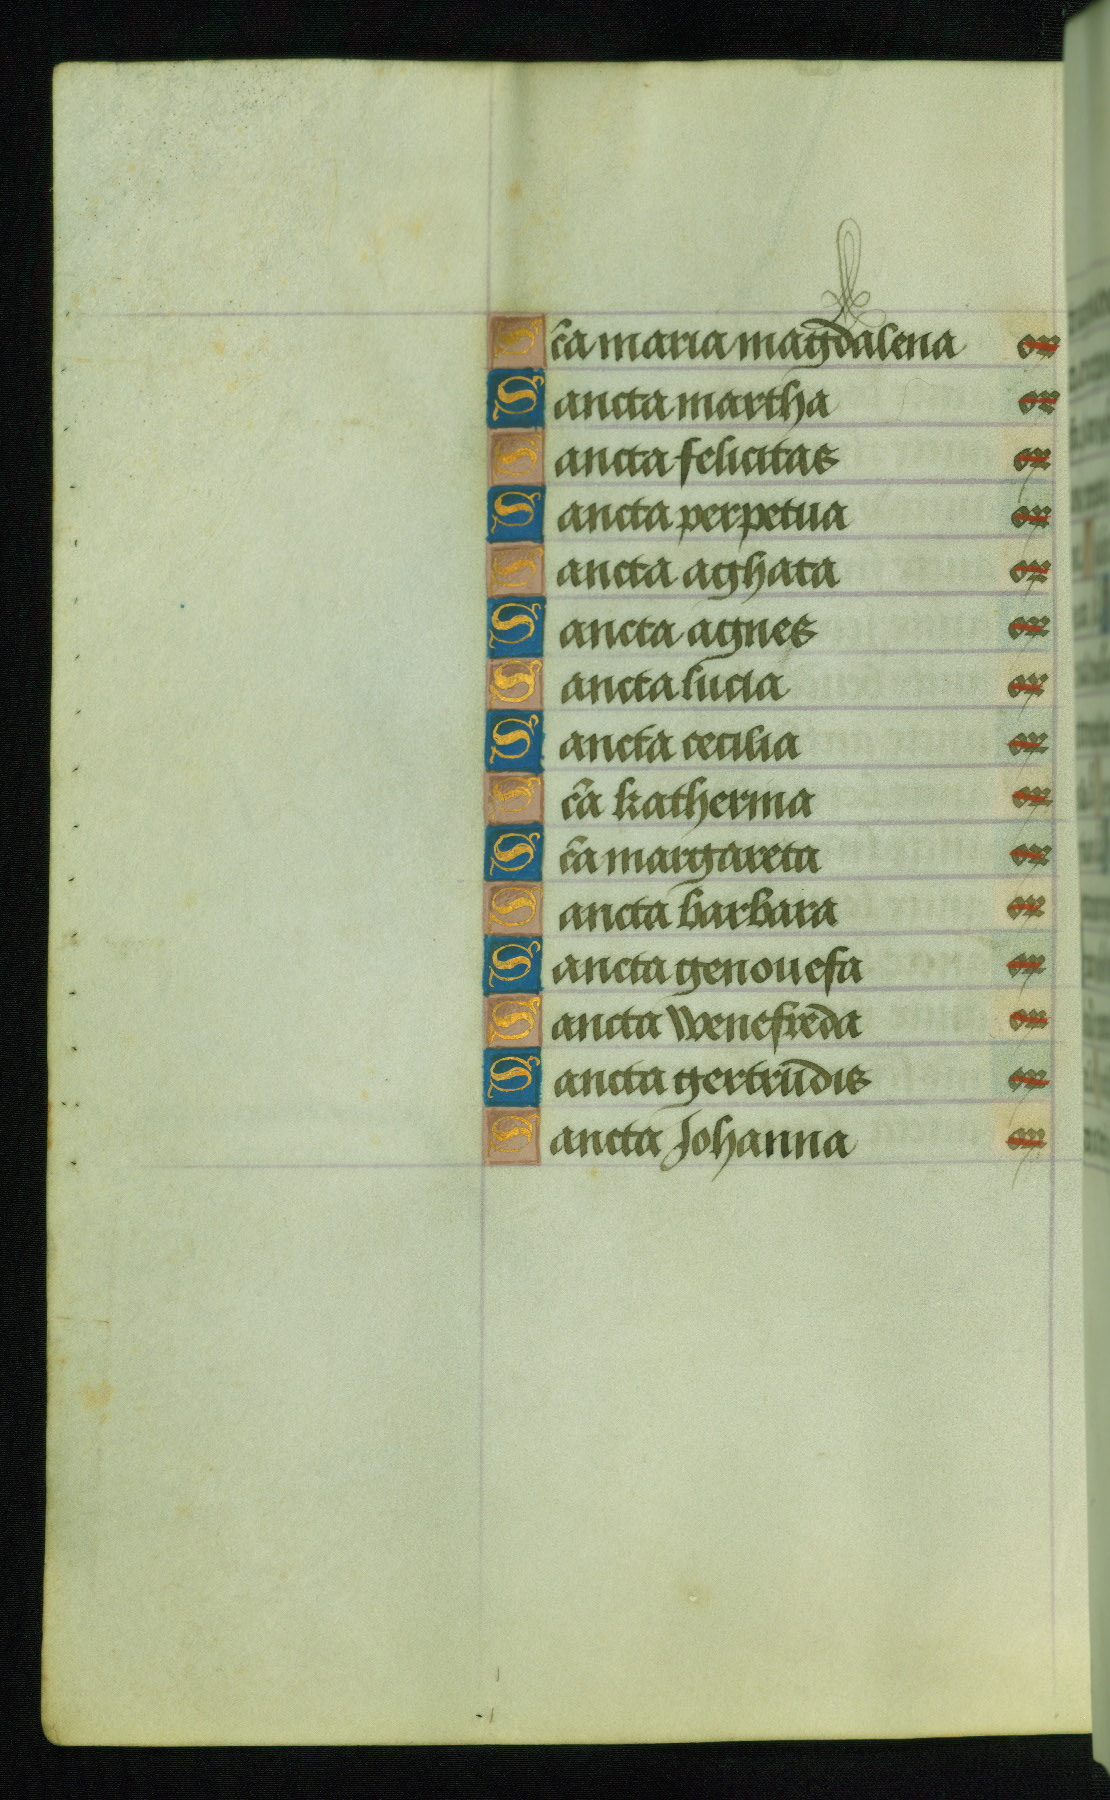 Sc̃a maria magdalena or
Sancta martha or
Sancta felicitas or
Sancta perpetua or
Sancta aghata or
Sancta agnes or
Sancta lucia or
Sancta cecilia or
Sc̃a katherina or
Sc̃a margareta or
Sancta barbara or
Sancta genouefa or
Sancta wenefreda or
Sancta gertrudis or
Sancta Johanna or